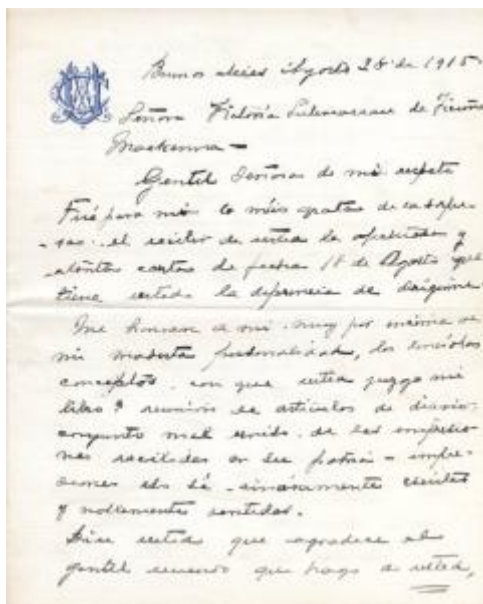 Buenos Aires Agosto 28 de 1915.
Señora Victoria Subercaseaux de Vicuña
Mackenna –
Gentil Señora de mi respeto
Fué para mi la más grata de las sorpre-
-sas el recibir de usted la afectuosa y
atenta carta de fecha 18 de Agosto que
tiene usted la deferencia de dirigirme
Me honran a mi, muy por encima de
mi modesta personalidad, los
conceptos con que usted juzga mi
libro? reunión de artículos de diario,
conjunto mal unido de las impresio-
nes recibidas en su patria – impre-
siones eso sí – sinceramente escritas
y noblemente sentidas.
Dice usted que agradece el
gentil recuerdo que hago a usted,